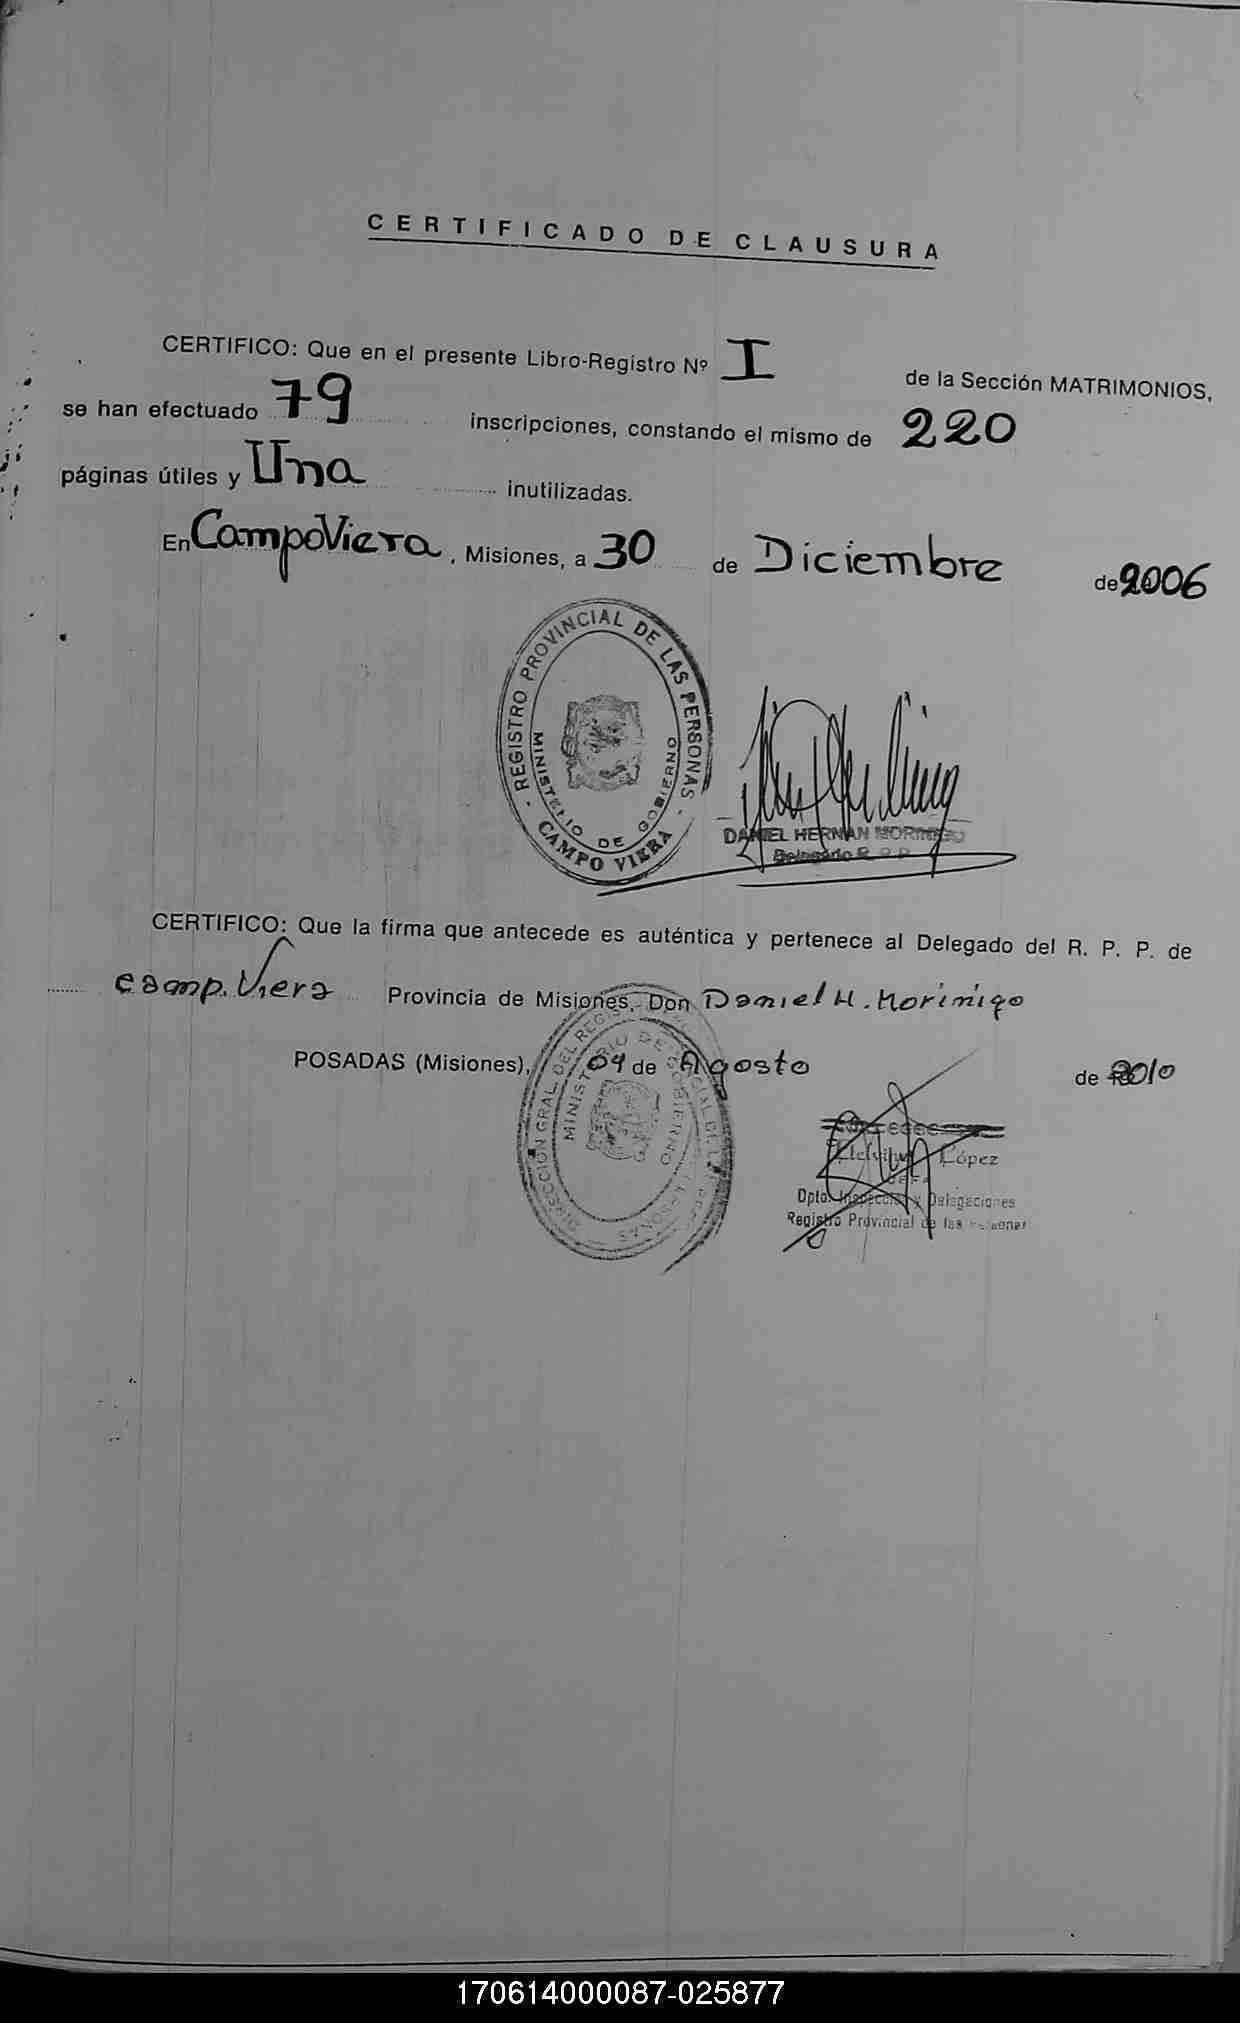 CERTIFICADO DE CLAUSURA
CERTIFICO: Que en el presente Libro-Registro Nº I de la Sección MATRIMONIOS,
se han efectuado 79 inscripciones, constando el mismo de 220
páginas útiles y Una inutilizadas.
En Campo Viera, Misiones, a 30 de Diciembre de 2006
REGISTRO PROVINCIAL DE LAS PERSONAS
MINISTERIO DE GOBIERNO
CAMPO VIERA
DANIEL HERNAN MORINIGO
Delegado R. P. P.
CERTIFICO: Que la firma que antecede es auténtica y pertenece al Delegado del R. P. P. de
Camp. Viera Provincia de Misiones, Don Daniel H. Morinigo
POSADAS (Misiones), 04 de Agosto de 2010
DIRECCIÓN GRAL. DEL REGISTRO PROVINCIAL DE LAS PERSONAS
MINISTERIO DE GOBIERNO
López
Dpto. Inspección y Delegaciones
Registro Provincial de las Personas
170614000087-025877